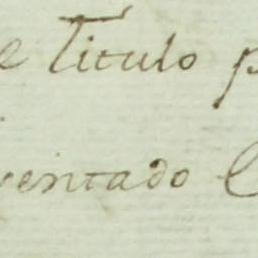 e Titulo p
ventado C